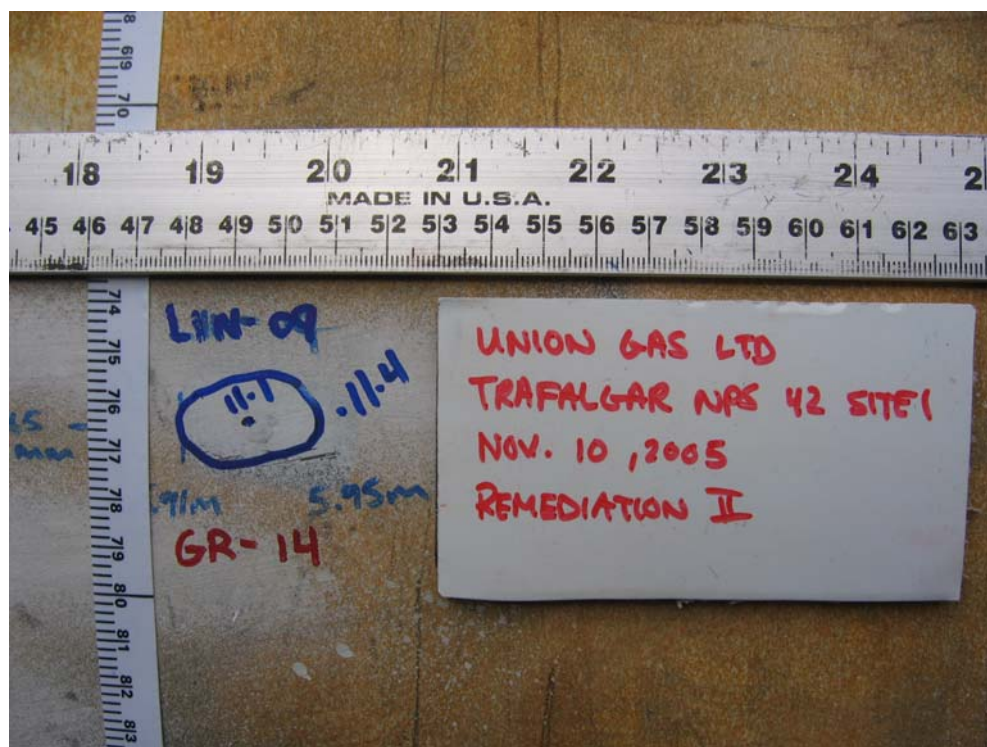 68
69
70
18 19 20 21 22 23 24 2
MADE IN U.S.A.
45 46 47 48 49 50 51 52 53 54 55 56 57 58 59 60 61 62 63
74
75
76
77
78
79
80
81
82
83
LIN-09
11.1
.11.4
mm
.91m 5.95m
GR-14
UNION GAS LTD
TRAFALGAR NPS 42 SITE 1
NOV. 10, 2005
REMEDIATION II